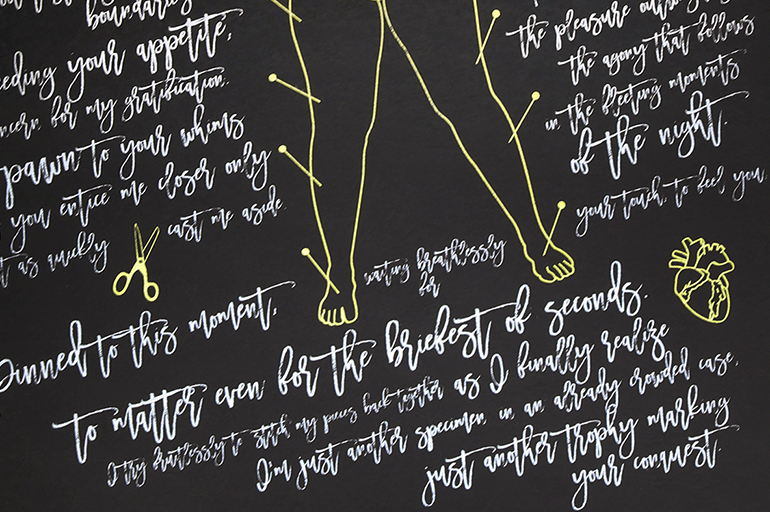 boundaries
eding your appetite,
ncern for my gratification.
pawn to your whims
you entice me closer only
t as quickly
cast me aside.
the pleasure
the agony that follows
in the fleeting moments
of the night.
your touch, to feel you.
waiting breathlessly
for
Pinned to this moment,
to matter even for the briefest of seconds.
I try fruitlessly to stitch my pieces back together as I finally realize
I'm just another specimen in an already crowded case,
just another trophy marking
your conquest.